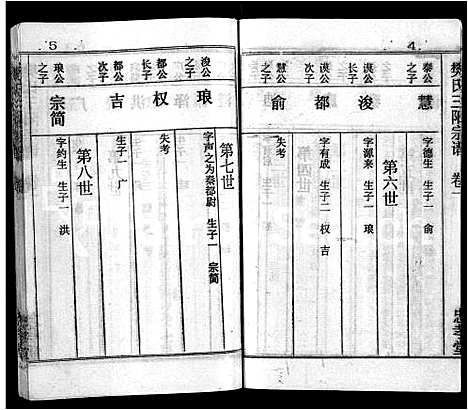 樊氏三阳宗谱 卷一
忠孝堂
4
秦公之子
慧
字德生 生子一 俞
第六世
谟公长子
浚
字源来 生子一 琅
谟公次子
都
字有成 生子二 权 吉
慧公之子
俞
失考
5
第七世
浚公之子
琅
字声之为秦都尉 生子一 宗简
都公长子
权
失考
都公次子
吉
生子一 广
第八世
琅公之子
宗简
字约生 生子一 洪